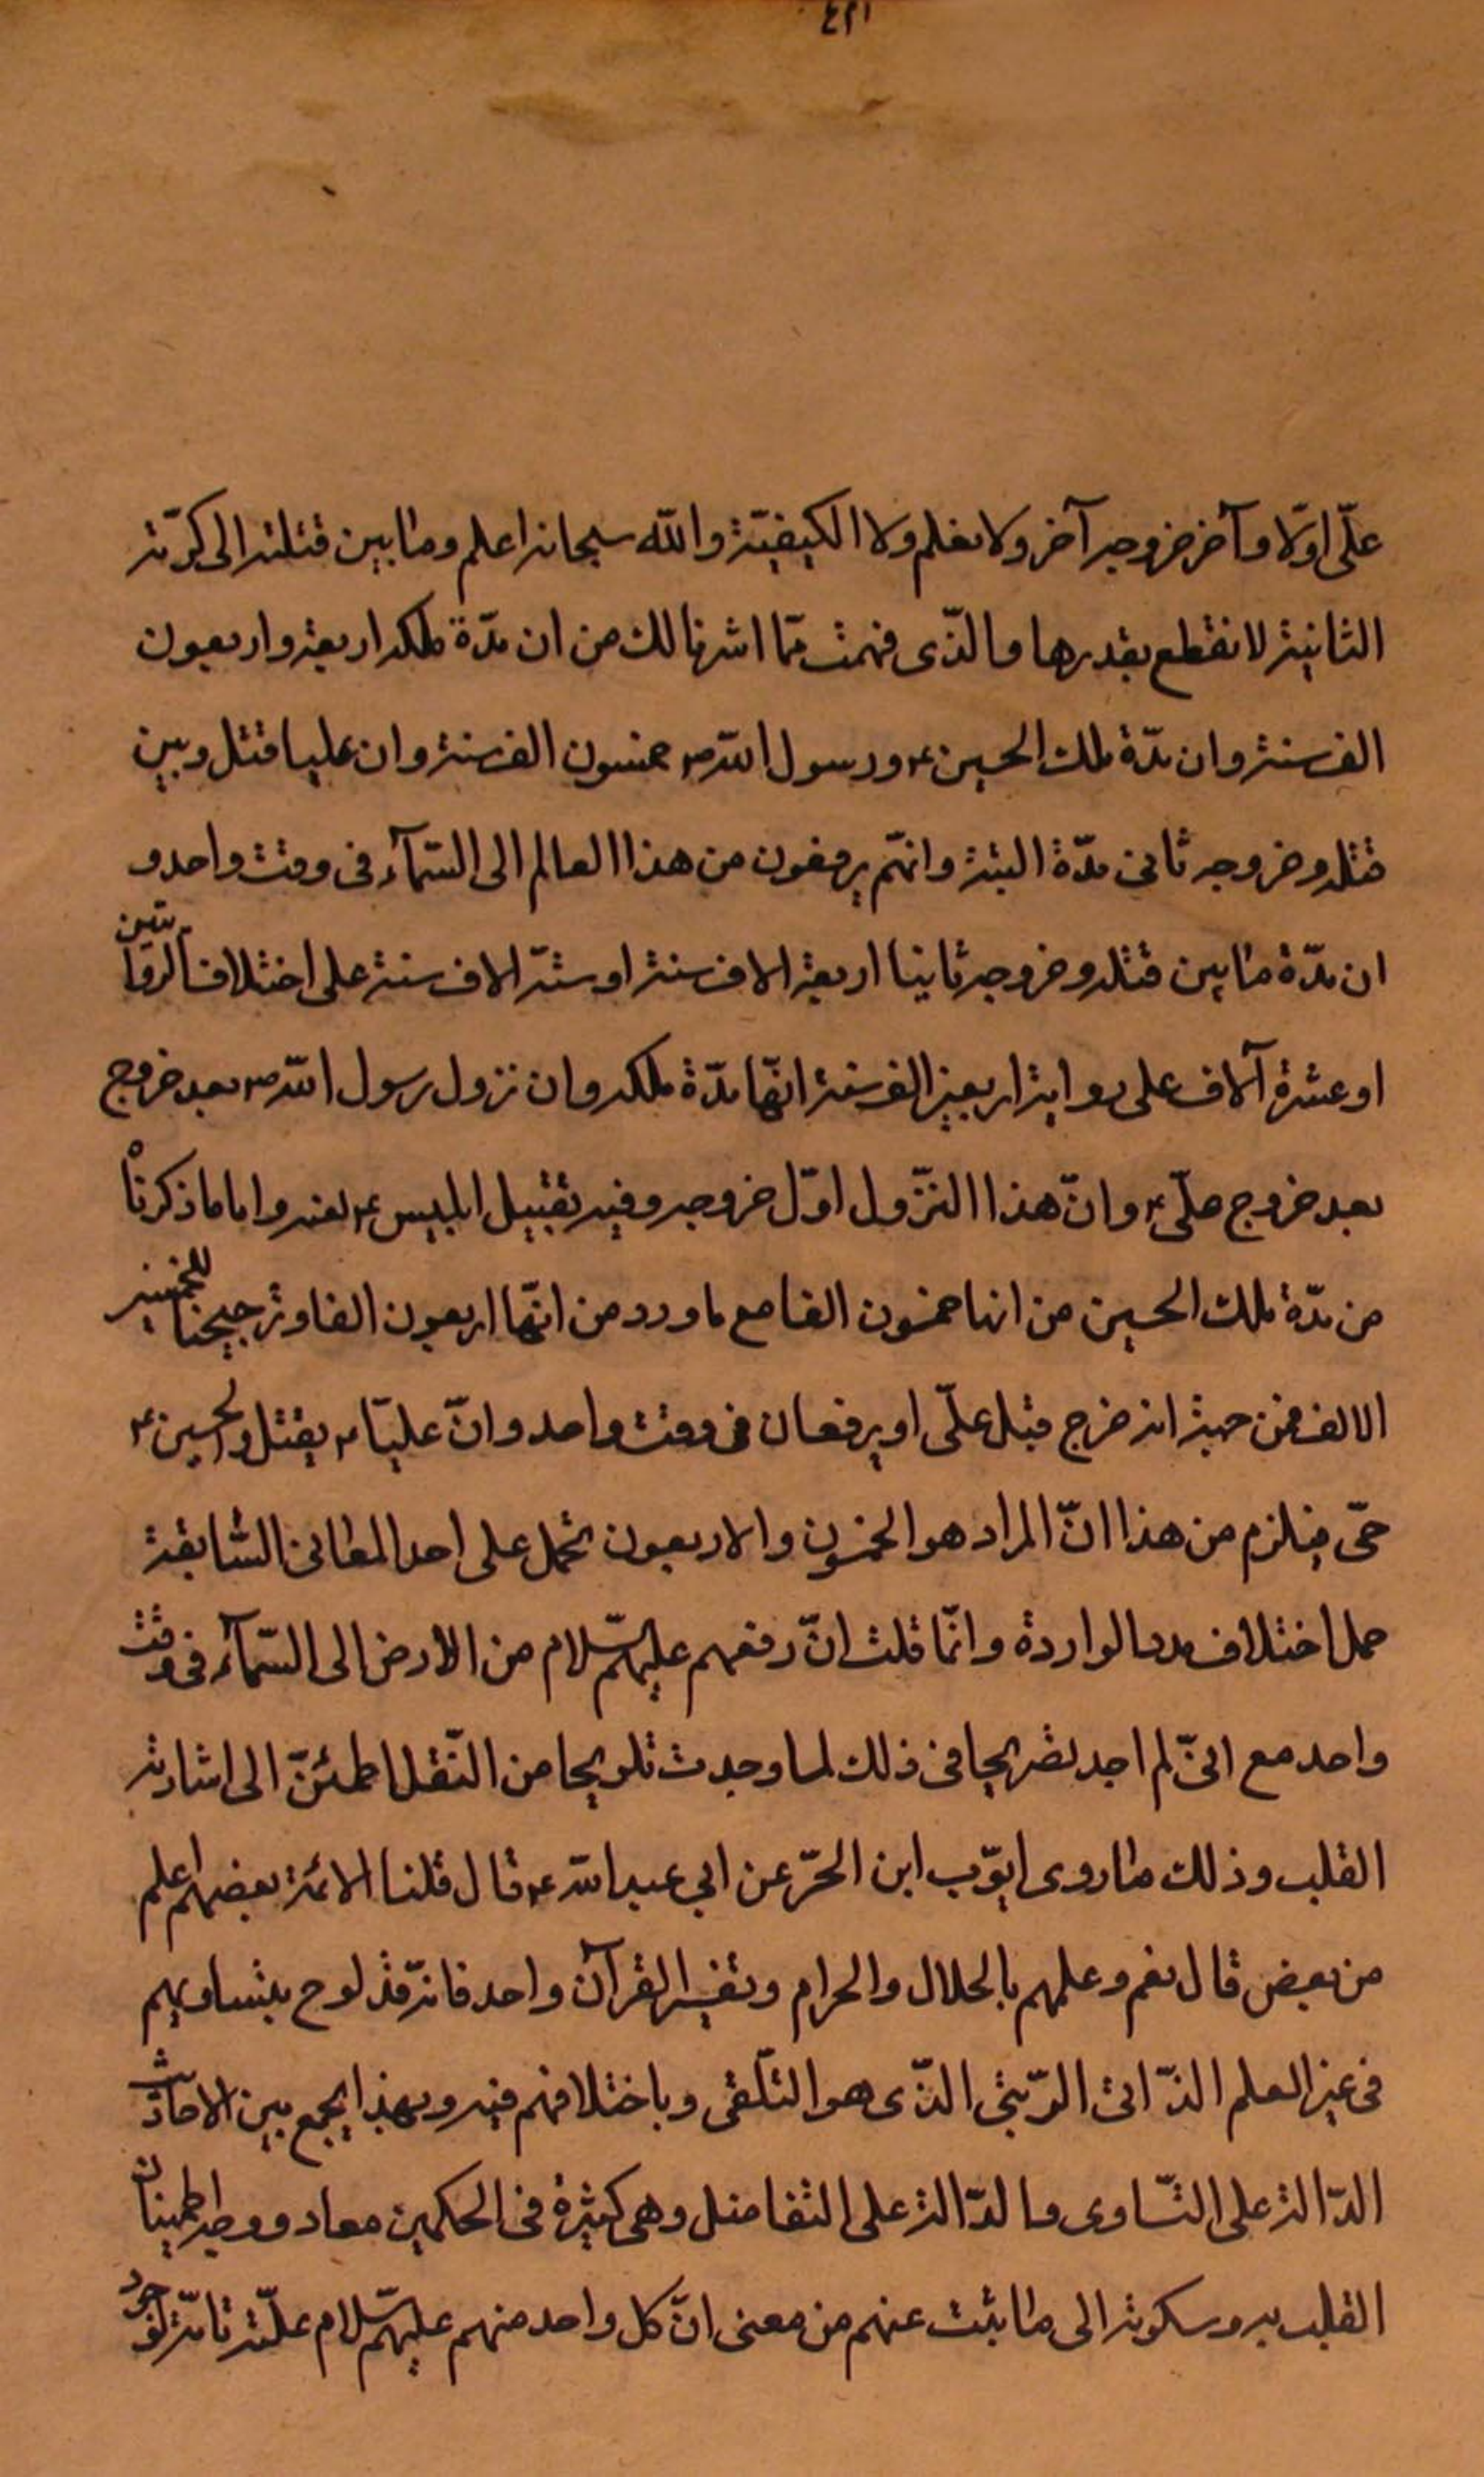 ٤٢١
علّى اوّلا وآخر خروجه آخر ولا نعلم ولا الكيفيّة والله سبحانه اعلم وما بين قتلته الى كرّته
الثانية لا نقطع بقدرها والذّى فهمت ممّا اشرنا لك من ان مدّة ملكه اربعة واربعون
الف سنة وان مدّة ملك الحسين ع ورسول الله ص خمسون الف سنة وان عليا قتل وبين
قتله وخروجه ثانى مدّة البتة وانهّم يرفعون من هذا العالم الى السّمآء فى وقت واحد و
ان مدّة ما بين قتله وخروجه ثانيا اربعة الاف سنة او ستّة الاف سنة على اختلاف الروايتين
او عشرة آلاف على رواية اربعين الف سنة انهّا مدّة ملكه وان نزول رسول الله ص بعد خروج
بعد خروج علّى ع وانّ هذا النّزول اوّل خروجه وفيه تقتيل ابليس ع لعنه واما ما ذكرناْ
من مدّة ملك الحسين من انها خمسون الفا مع ما ورد من انهّا اربعون الفا وترجيحنا للخمسين
الالف فمن حيث انه خرج قبل علّى او يرفعان فى وقت واحد وانّ عليّا ع يقتل والحسين ع
حّى فيلزم من هذا انّ المراد هو الخمسون والاربعون تحمل على احد المعانى السّابقة
حمل اختلاف مدد الواردة وانّما قلت انّ رفعهم عليهم السّلام من الأرض الى السّمآء فى وقت
واحد مع انىّ لم اجد تصريحا فى ذلك لما وجدت تلويحا من النّقل اطمئنّ الى اشارته
القلب وذلك ما روى ايوّب ابن الحرّ عن ابي عبد الله ع قال قلنا الائمة بعضهم اعلم
من بعض قال نعم وعلمهم بالحلال والحرام وتفسير القرآن واحد فانّه قد لوح بتساويهم
فى غير العلم الذّاتى الرّتبّى الذّى هو التلّقى وباختلافهم فيه وبهذا يجمع بين الاحاديث
الدّالة على التّساوى والدّالة على التفاضل وهى كثيرة فى الحكمين معاد ووجه اطمينان
القلب به وسكونه الى ما ثبت عنهم من معنى انّ كل واحد منهم عليهم السّلام علّة تامّة لوجود